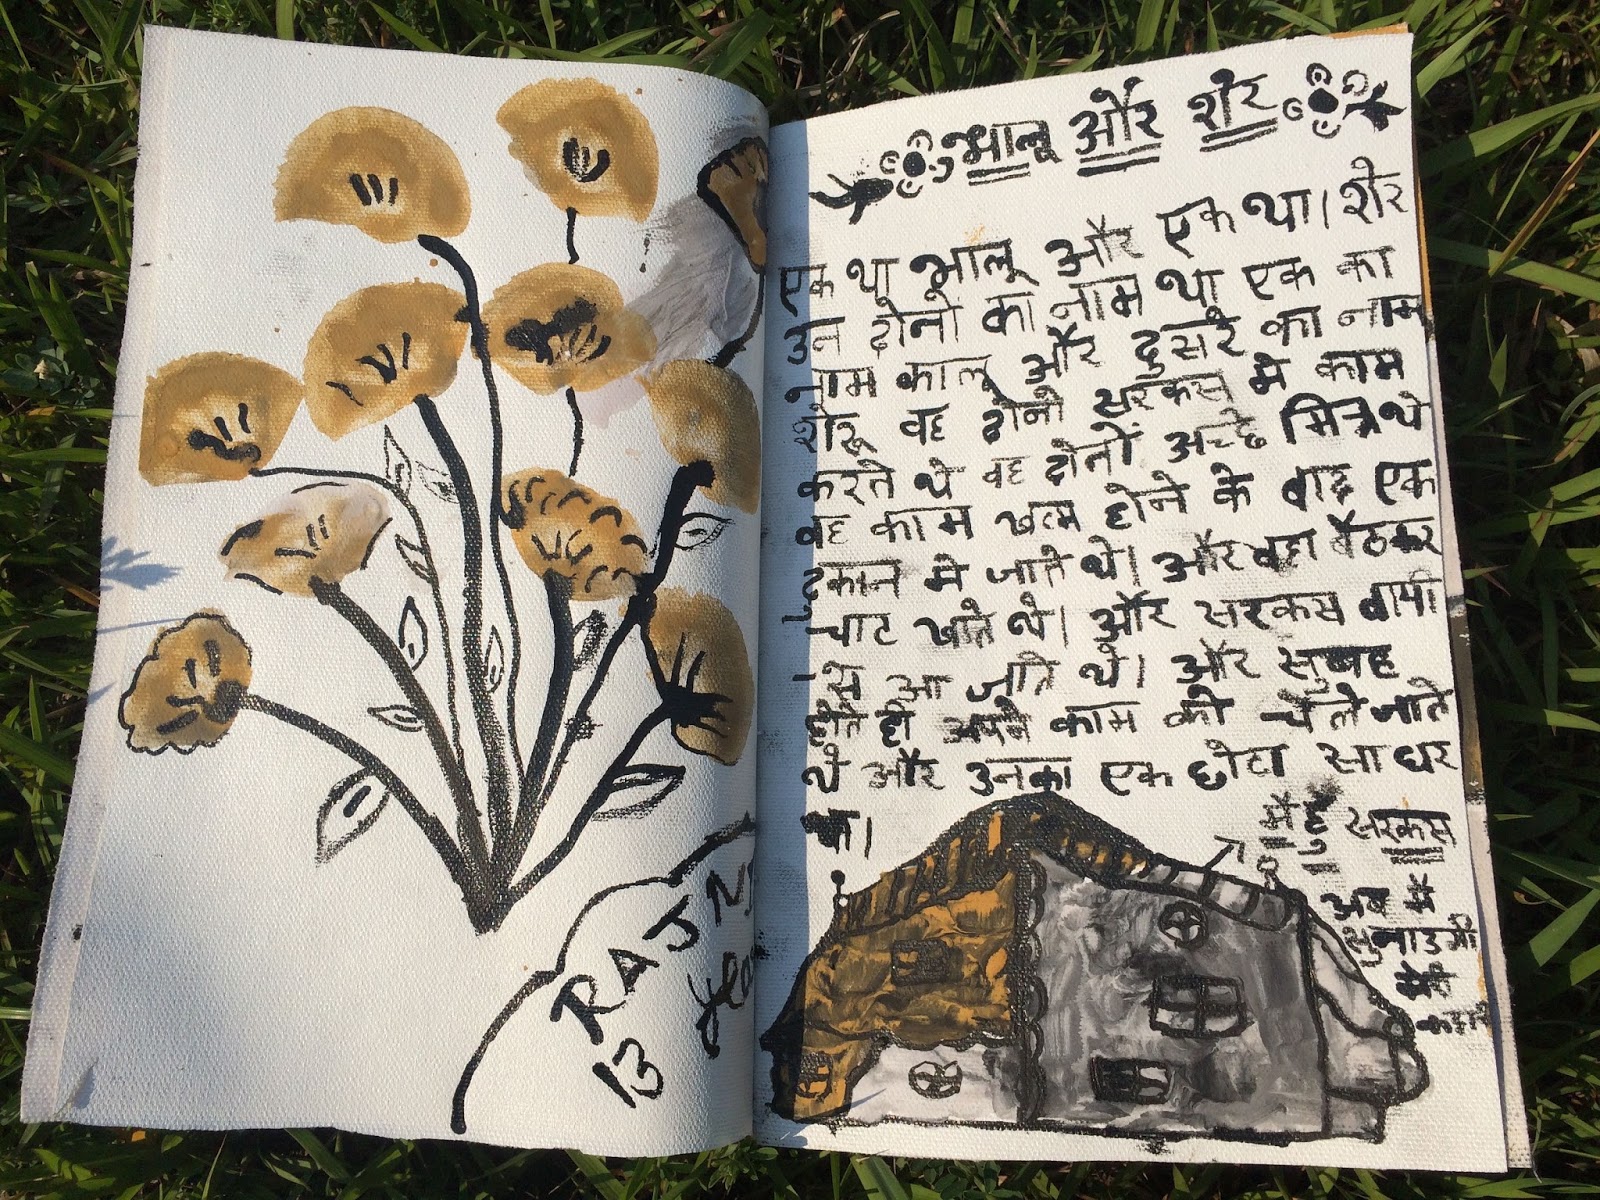 RAJN
13 Yea
भालू और शेर
एक था भालू और एक था। शेर
उन दोनो का नाम था एक का
नाम कालू और दुसरे का नाम
शेरू वह दोनो सरकस मे काम
करते थे वह दोनों अच्छे मित्र थे
वह काम खत्म होने के बाद एक
दुकान मे जाते थे। और वहा बैठकर
चाट खाते थे। और सरकस वापी
स आ जाते थे। और सुबह
होते ही अपने काम को चले जाते
थे और उनका एक छोटा सा घर
था।
मैं हु सरकस
अब मैं
सुनाउगी